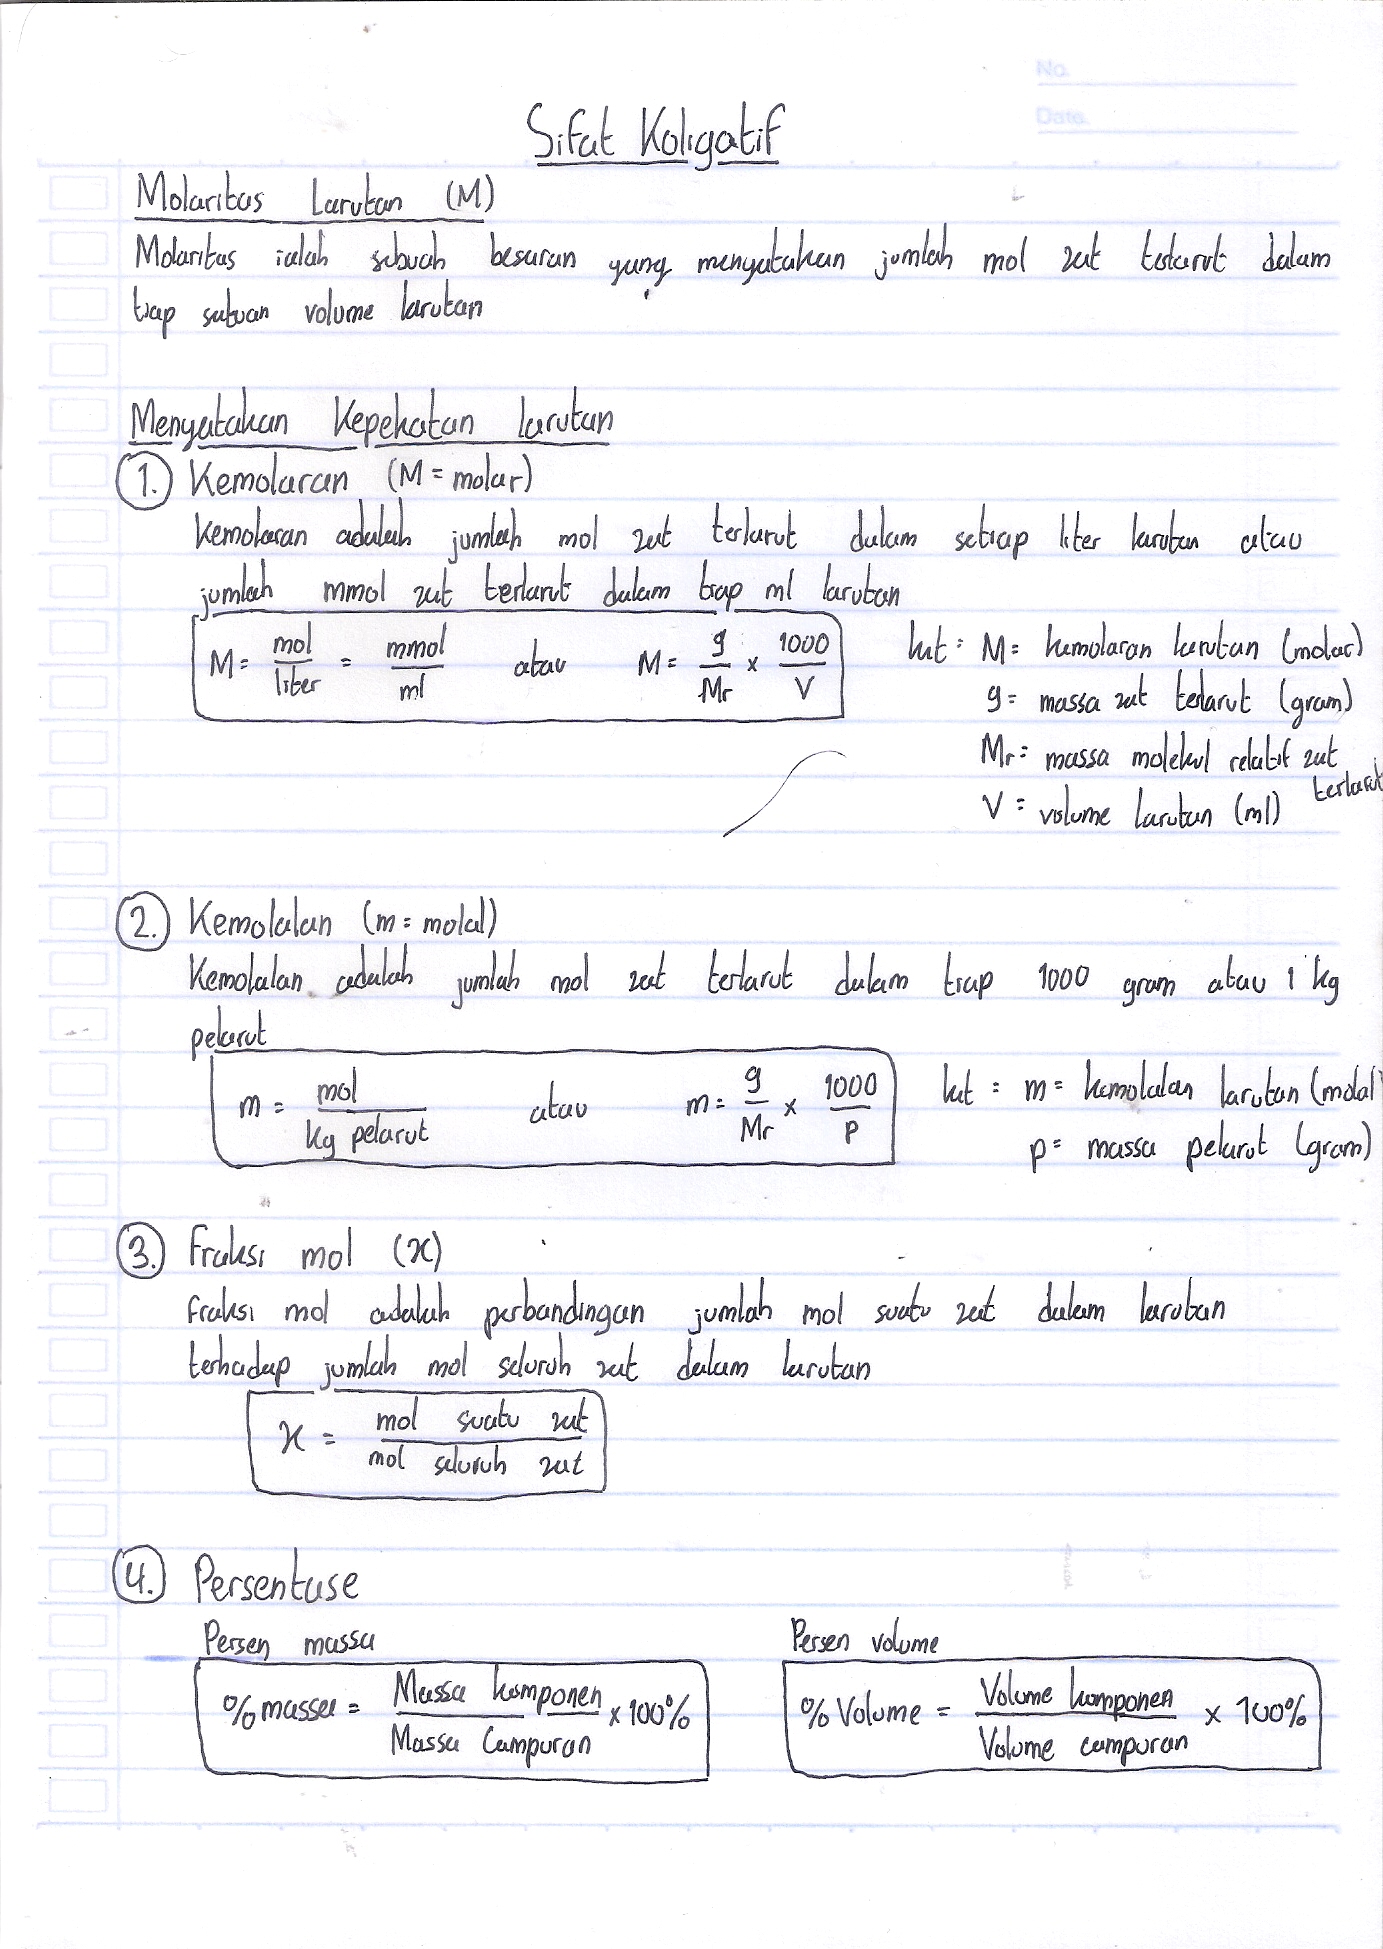 No.
Date.
Sifat Koligatif
Molaritas Larutan (M)
Molaritas ialah sebuah besaran yang menyatakan jumlah mol zat terlarut dalam
tiap satuan volume larutan
Menyatakan Kepekatan larutan
1. Kemolaran (M = molar)
Kemolaran adalah jumlah mol zat terlarut dalam setiap liter larutan atau
jumlah mmol zat terlarut dalam tiap ml larutan
M = mol/liter = mmol/ml atau M = g/Mr x 1000/V
ket : M = kemolaran larutan (molar)
g = massa zat terlarut (gram)
Mr = massa molekul relatif zat terlarut
V = volume larutan (ml)
2. Kemolalan (m = molal)
Kemolalan adalah jumlah mol zat terlarut dalam tiap 1000 gram atau 1 kg
pelarut
m = mol/kg pelarut atau m = g/Mr x 1000/p
ket : m = kemolalan larutan (molal
p = massa pelarut (gram)
3. Fraksi mol (x)
Fraksi mol adalah perbandingan jumlah mol suatu zat dalam larutan
terhadap jumlah mol seluruh zat dalam larutan
x = mol suatu zat/mol seluruh zat
4. Persentase
Persen massa
% massa = Massa komponen/Massa Campuran x 100%
Persen volume
% Volume = Volume komponen/Volume campuran x 100%